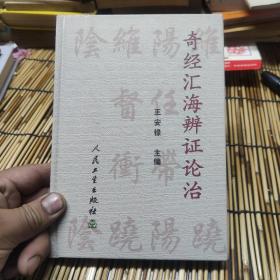 奇经汇海辨证论治
王安禄 主编
人民卫生出版社
陰 維 陽 維
督 任
衝 帶
陰 蹺 陽 蹺